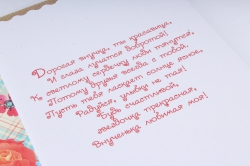 Дорогая внучка, ты красавица,
И глаза лучатся добротой!
К светлому сердечку люди тянутся,
Потому друзья всегда с тобой.
Пусть тебя ласкает солнце ясное,
Радуйся, улыбку не тая!
Будь счастливой,
звёздочка прекрасная,
Внученька любимая моя!